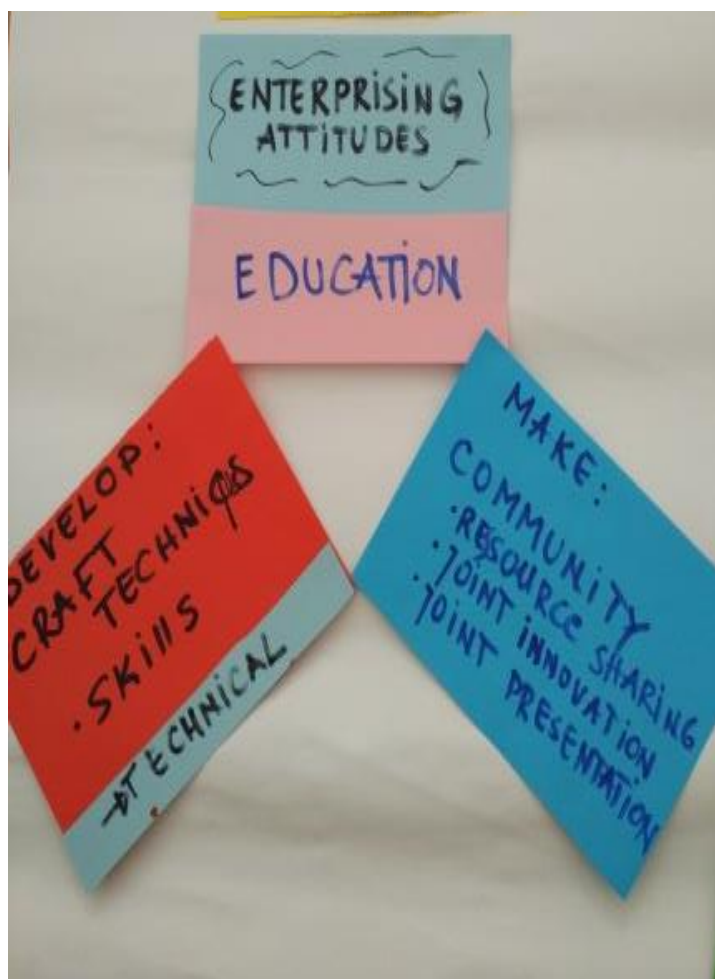 ENTERPRISING
ATTITUDES
EDUCATION
DEVELOP:
CRAFT
TECHNIQS
• SKills
→TECHNICAL
MAKE:
COMMUNITY
• RESOURCE SHARING
• JOINT INNOVATION
• JOINT PRESENTATION